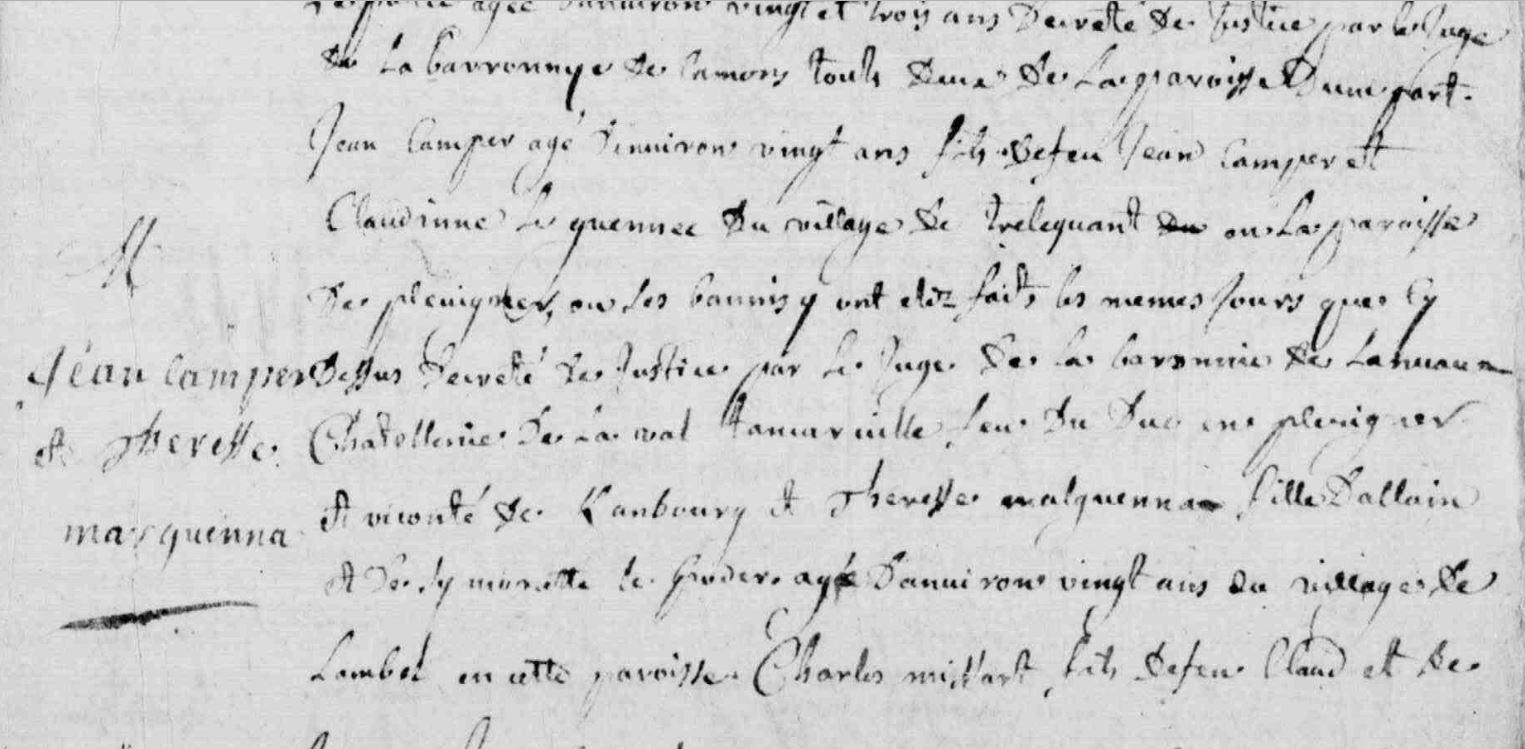 agée danuiron vingt et trois ans Decreté de Justice par le Juge
de La barronnye de Camors touts deux de La paroisse Dune part.
Jean Camper agé denuiron vingt ans fils defeu Jean Camper et
Claudinne Le quennec Du village de trelequant en La paroisse
De pleuigner, ou Les bannis y ont etez faits les memes Jours que Cy
Dessus Decreté de Justice par Le Juge de La baronnie de Lanuaux
Chatellenie De La val fieu Du Duc en pleuigner
Et viconté de Kanbourg et Theresse malquenna fille Dallain
Et De le agée Danuiron vingt ans du village de
Lambel en cette paroisse. Charles missart fils defeu Claud et de
M
Jean Camper
et Theresse
malquenna